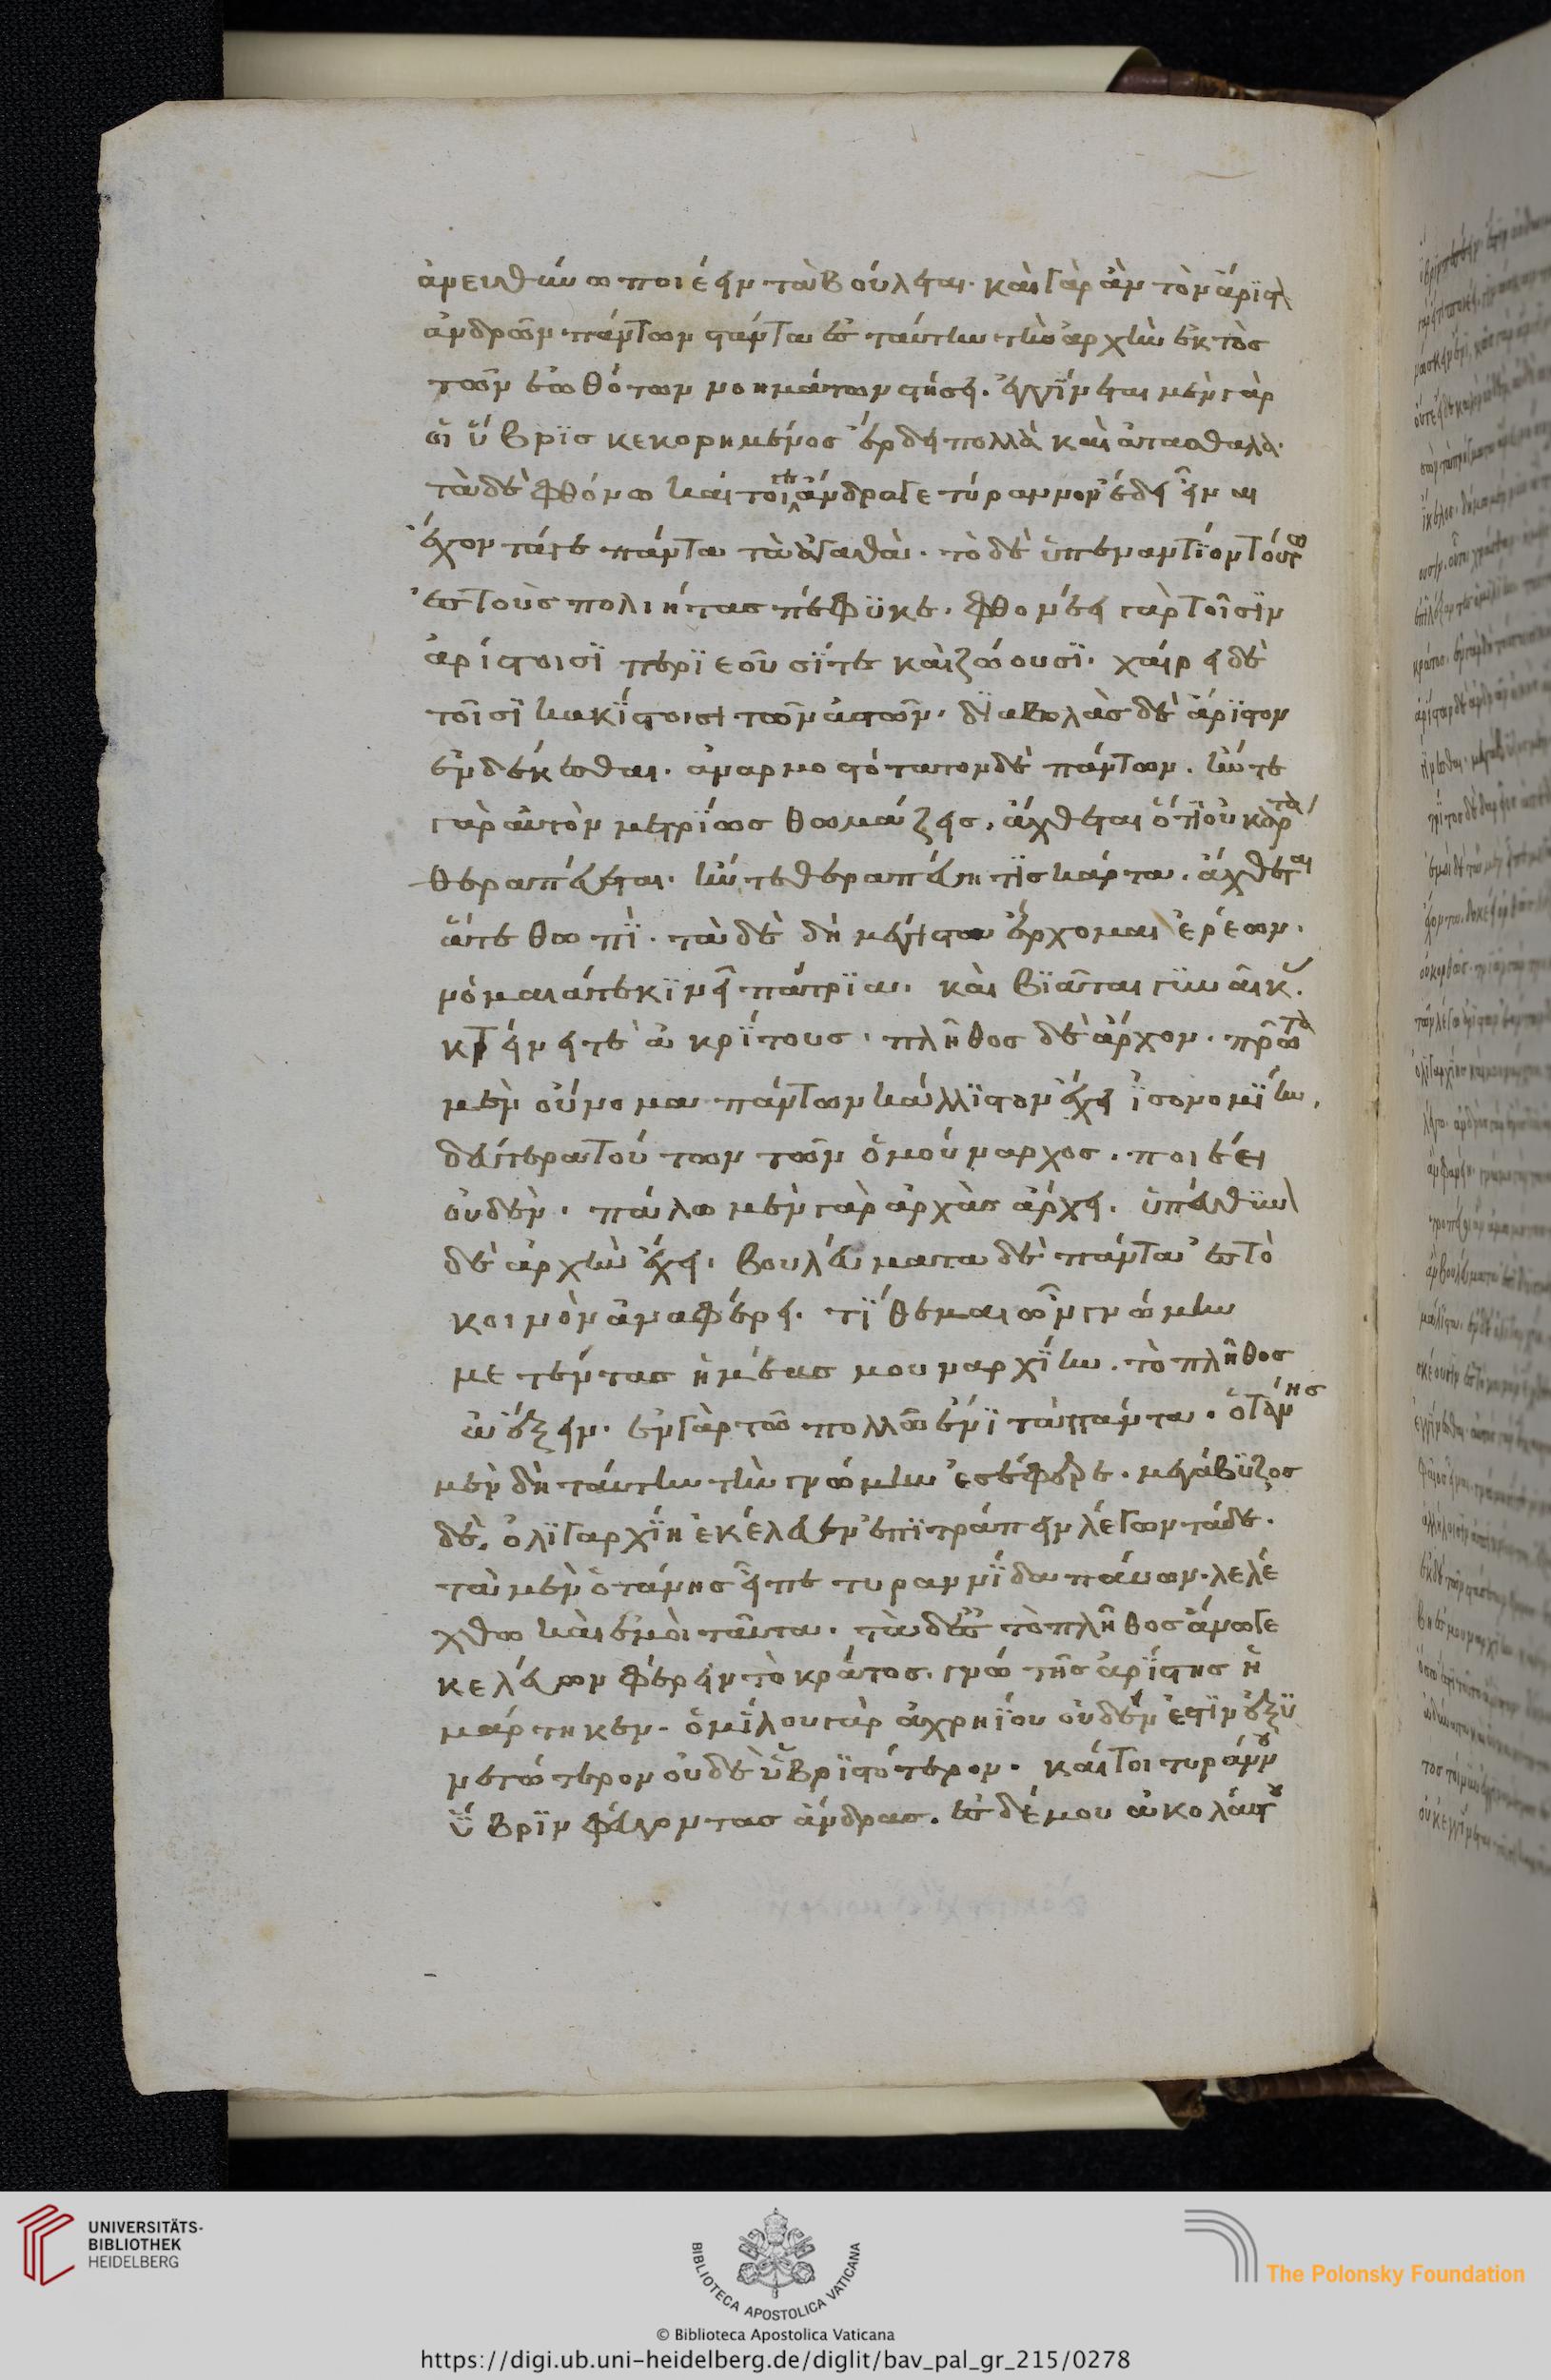 ἀνευθύνω ποιέειν τὰ βούλεται. καὶ γὰρ ἂν τὸν ἄριστ
ἀνδρῶν πάντων στάντα ἐς ταύτην τὴν ἀρχὴν ἐκτὸς
τῶν ἐωθότων νοημάτων στήσει. ἐγγίνεται μὲν γὰρ
οἱ ὕβρϊς κεκορημένος ἔρδει πολλὰ καὶ ἀτάσθαλα.
τὰ δὲ φθόνω καίτοι ἄνδρα γε τύραννον ἔδει εἶναι
ἔχοντά γε πάντα τὰ ἀγαθά. τὸ δὲ ὑπεναντίον τούτω
ἐς τοὺς πολιήτας πέφυκε. φθονέει γὰρ τοῖσϊν
ἀρίστοισϊ περϊεοῦσΐ τε καὶ ζώουσϊ. χαίρει δὲ
τοῖσϊ κακίστοισι τῶν ἀστῶν. δϊαβολὰς δὲ ἄρϊστον
ἐνδέκεσθαι. ἀναρμοστότατον δὲ πάντων. ἤν τε
γὰρ αὐτὸν μετρίως θωμάζεις, ἄχθεται ὅτϊ οὐ κάρτα
θεραπεύεται. ἤν τε θεραπεύη τὶς κάρτα, ἄχθεται
ἅτε θωπϊ. τὰ δὲ δὴ μέγιστα ἔρχομαι ἐρέων.
νόμαιά τε κϊνεῖ πάτρϊα. καὶ βϊᾶται γυναῖκ.
κτείνει τὲ ἀκρίτους. πλῆθος δὲ ἄρχον. πρῶτα
μὲν οὔνομα πάντων κάλλϊστον ἔχει ἰσονομίην.
δεύτερα τούτων τῶν ὁ μούναρχος. ποιέει
οὐδέν. πάλω μὲν γὰρ ἀρχὰς ἄρχει. ὑπεύθυν
δὲ ἀρχὴν ἔχει. βουλεύματα δὲ πάντα ἐς τὸ
κοινὸν ἀναφέρει. τίθεμαι ὦν γνώμην
μετέντας ἡμέας μουναρχίην. τὸ πλῆθος
ἀέξειν. ἐν γὰρ τῶ πολλῶ ἔνϊ τὰ πάντα. ὀτάνης
μὲν δὴ ταύτην τὴν γνώμην ἐσέφερε. μεγάβυζος
δὲ, ὀλϊγαρχίη ἐκέλευεν ἐπϊτράπειν λέγων τάδε.
τὰ μὲν ὀτάνης εἶπε τυραννίδα παύων. λελέ
χθω καὶ ἐμοὶ ταῦτα. τὰ δ' ἐς τὸ πλῆθος ἄνωγε
κελεύων φέρειν τὸ κράτος. γνώ τῆς ἀρίστης ἡ
μάρτηκεν. ὁμίλου γὰρ ἀχρηΐου οὐδέν ἐστϊν ἀξυ
νετώτερον οὐδὲ ὑβρϊστότερον. καίτοι τυράννου
ὕβρϊν φεύγοντας ἄνδρας. ἐς δέμου ἀκολάστου
UNIVERSITÄTS-
BIBLIOTHEK
HEIDELBERG
BIBLIOTECA APOSTOLICA VATICANA
The Polonsky Foundation
© Biblioteca Apostolica Vaticana
https://digi.ub.uni-heidelberg.de/diglit/bav_pal_gr_215/0278